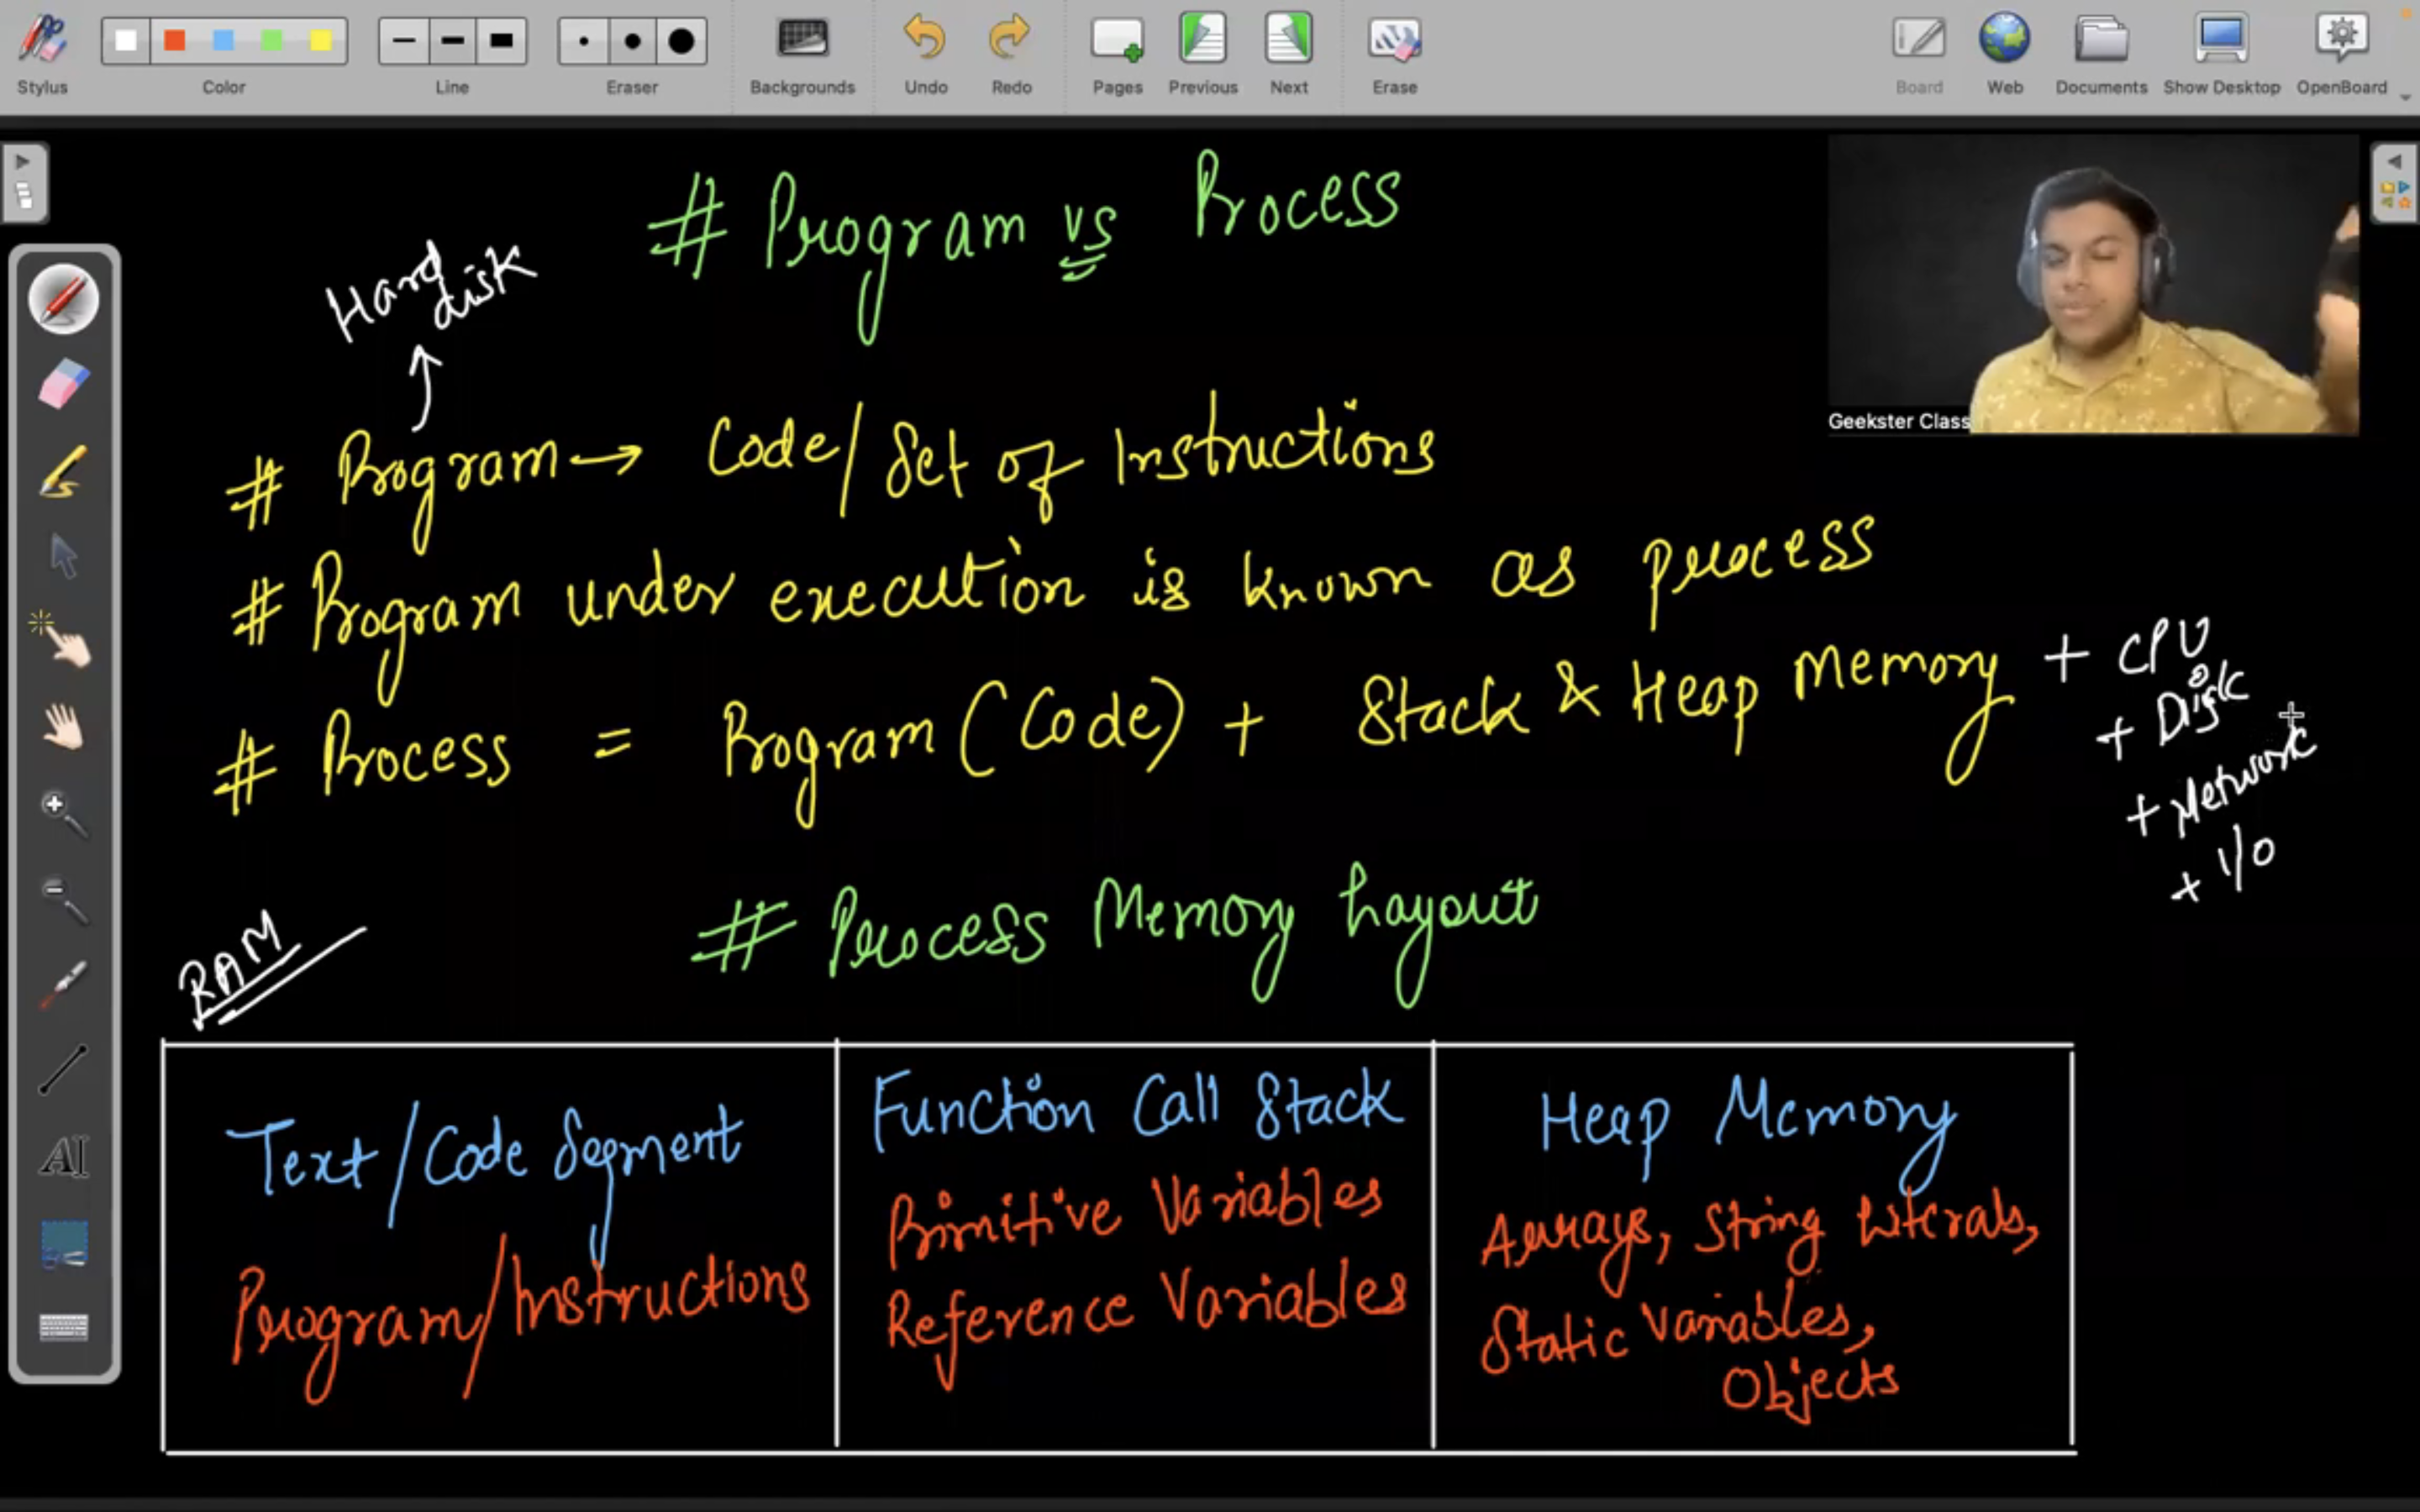 Stylus
Color
Line
Eraser
Backgrounds
Undo
Redo
Pages
Previous
Next
Erase
Board
Web
Documents
Show Desktop
OpenBoard
# Program vs Process
Hard
disk
Geekster Class
# Program → Code/Set of Instructions
# Program under execution is known as process
# Process = Program (Code) + Stack & Heap Memory + CPU
+ Disk
+ Network
+ I/O
# Process Memory Layout
RAM
Text/Code Segment
Program/Instructions
Function Call Stack
Primitive Variables
Reference Variables
Heap Memory
Arrays, String Literals,
Static Variables,
Objects
AI